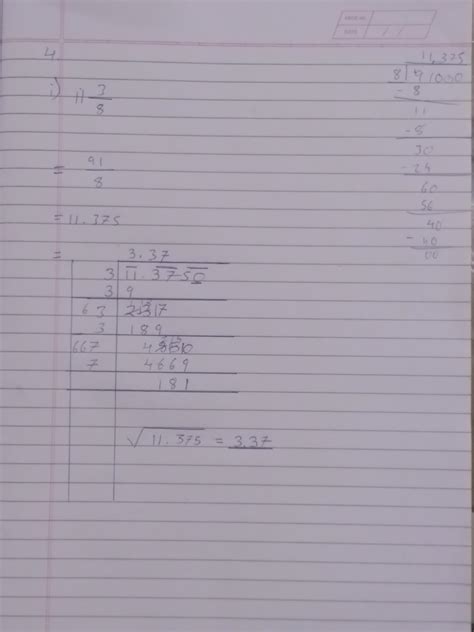 PAGE NO.
DATE
4.
i) 11 3/8
= 91/8
= 11.375
=
3.37
3 | 11.3750
3 | 9
63 | 237
3 | 189
667 | 4850
7 | 4669
181
√11.375 = 3.37
11.375
8 | 91000
- 8
11
- 8
30
- 24
60
56
40
- 40
00